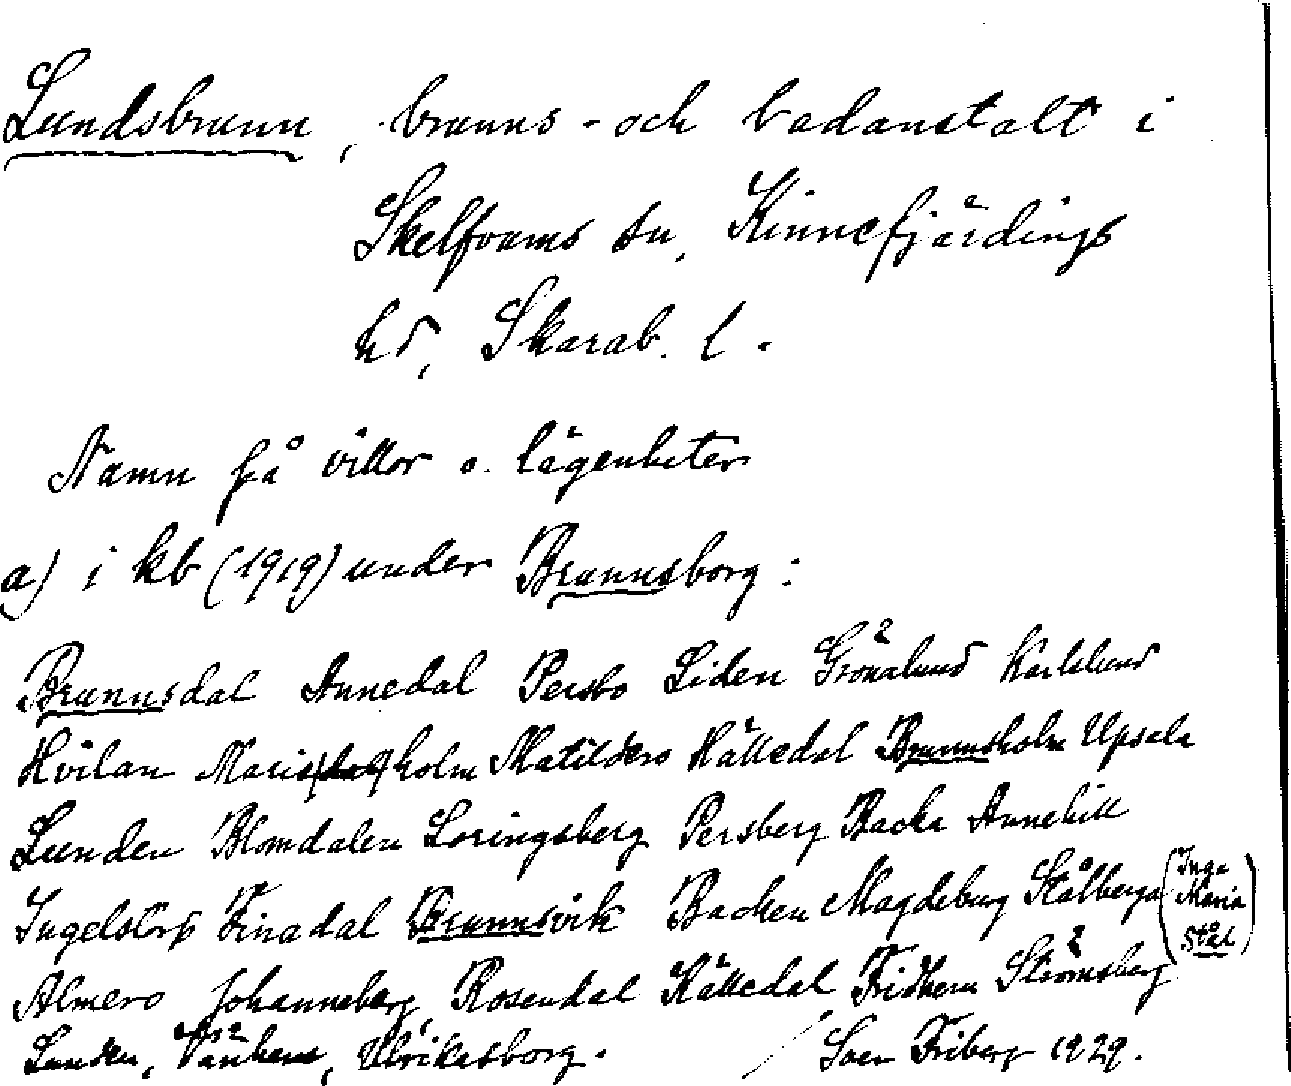 Lundsbrunn, brunns- och badanstalt i
Skelfvums sn, Kinnefjärdings
hd, Skarab. l.
Namn på villor o. lägenheter
a) i kb (1919) under Brunnsborg:
Brunnsdal Annedal Persbo Liden Grönalund Karlslund
Hvilan Marie(dal)holm Matildero Källedal Brunnsholm Upsala
Lunden Blomdalen Loringsberg Persberg Backa Annehill
Ingelstorp Finadal Brunnsvik Backen Magdeburg Stålberga (Inga Maria Stål)
Almero Johanneberg, Rosendal Källedal Fridhem Strömsberg
Lunden, Vänhem, Ulrikasborg. Sven Friberg 1929.